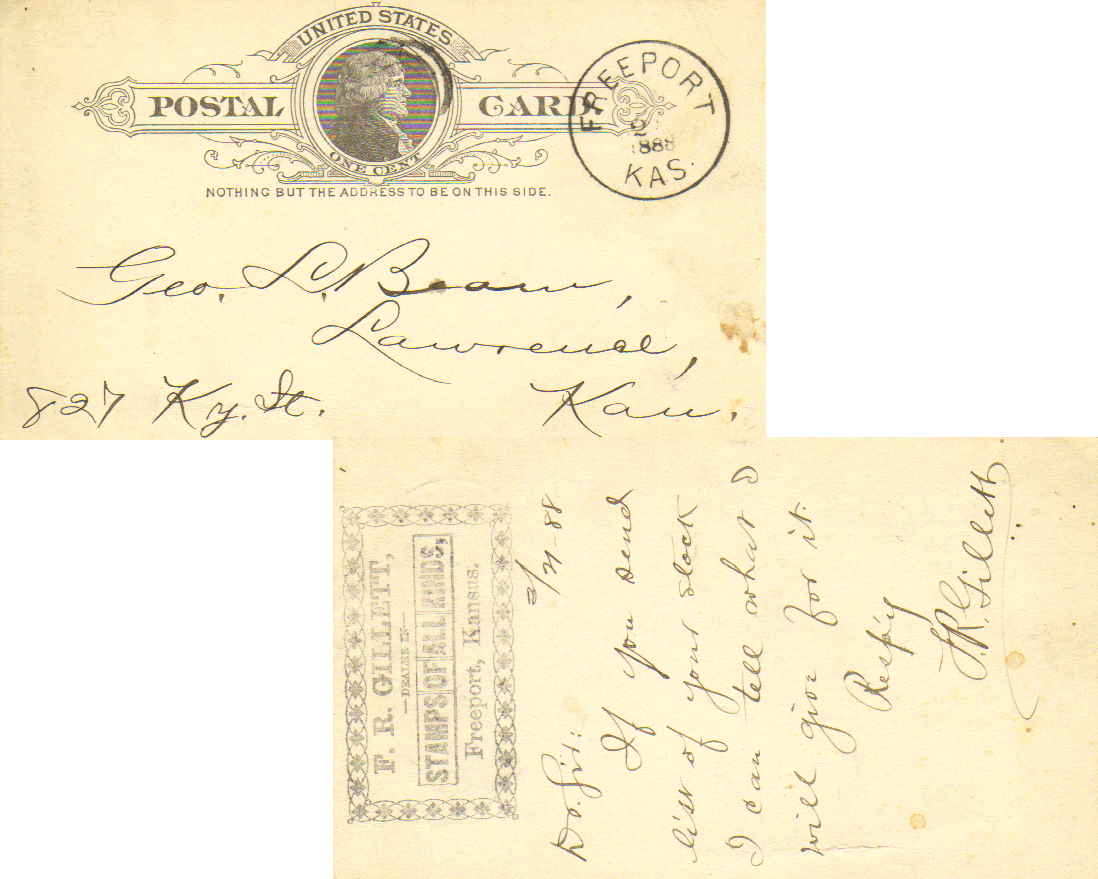 UNITED STATES
POSTAL CARD
ONE CENT
NOTHING BUT THE ADDRESS TO BE ON THIS SIDE.
FREEPORT
2
1888
KAS.
Geo. L. Beam,
Lawrence,
827 Ky. St. Kan.
F. R. GILLETT,
—DEALER IN—
STAMPS OF ALL KINDS,
Freeport, Kansas.
2/21-88
Dr. Sir:
If you send
list of your stock
I can tell what I
will give for it.
Resp'y
F.R. Gillett